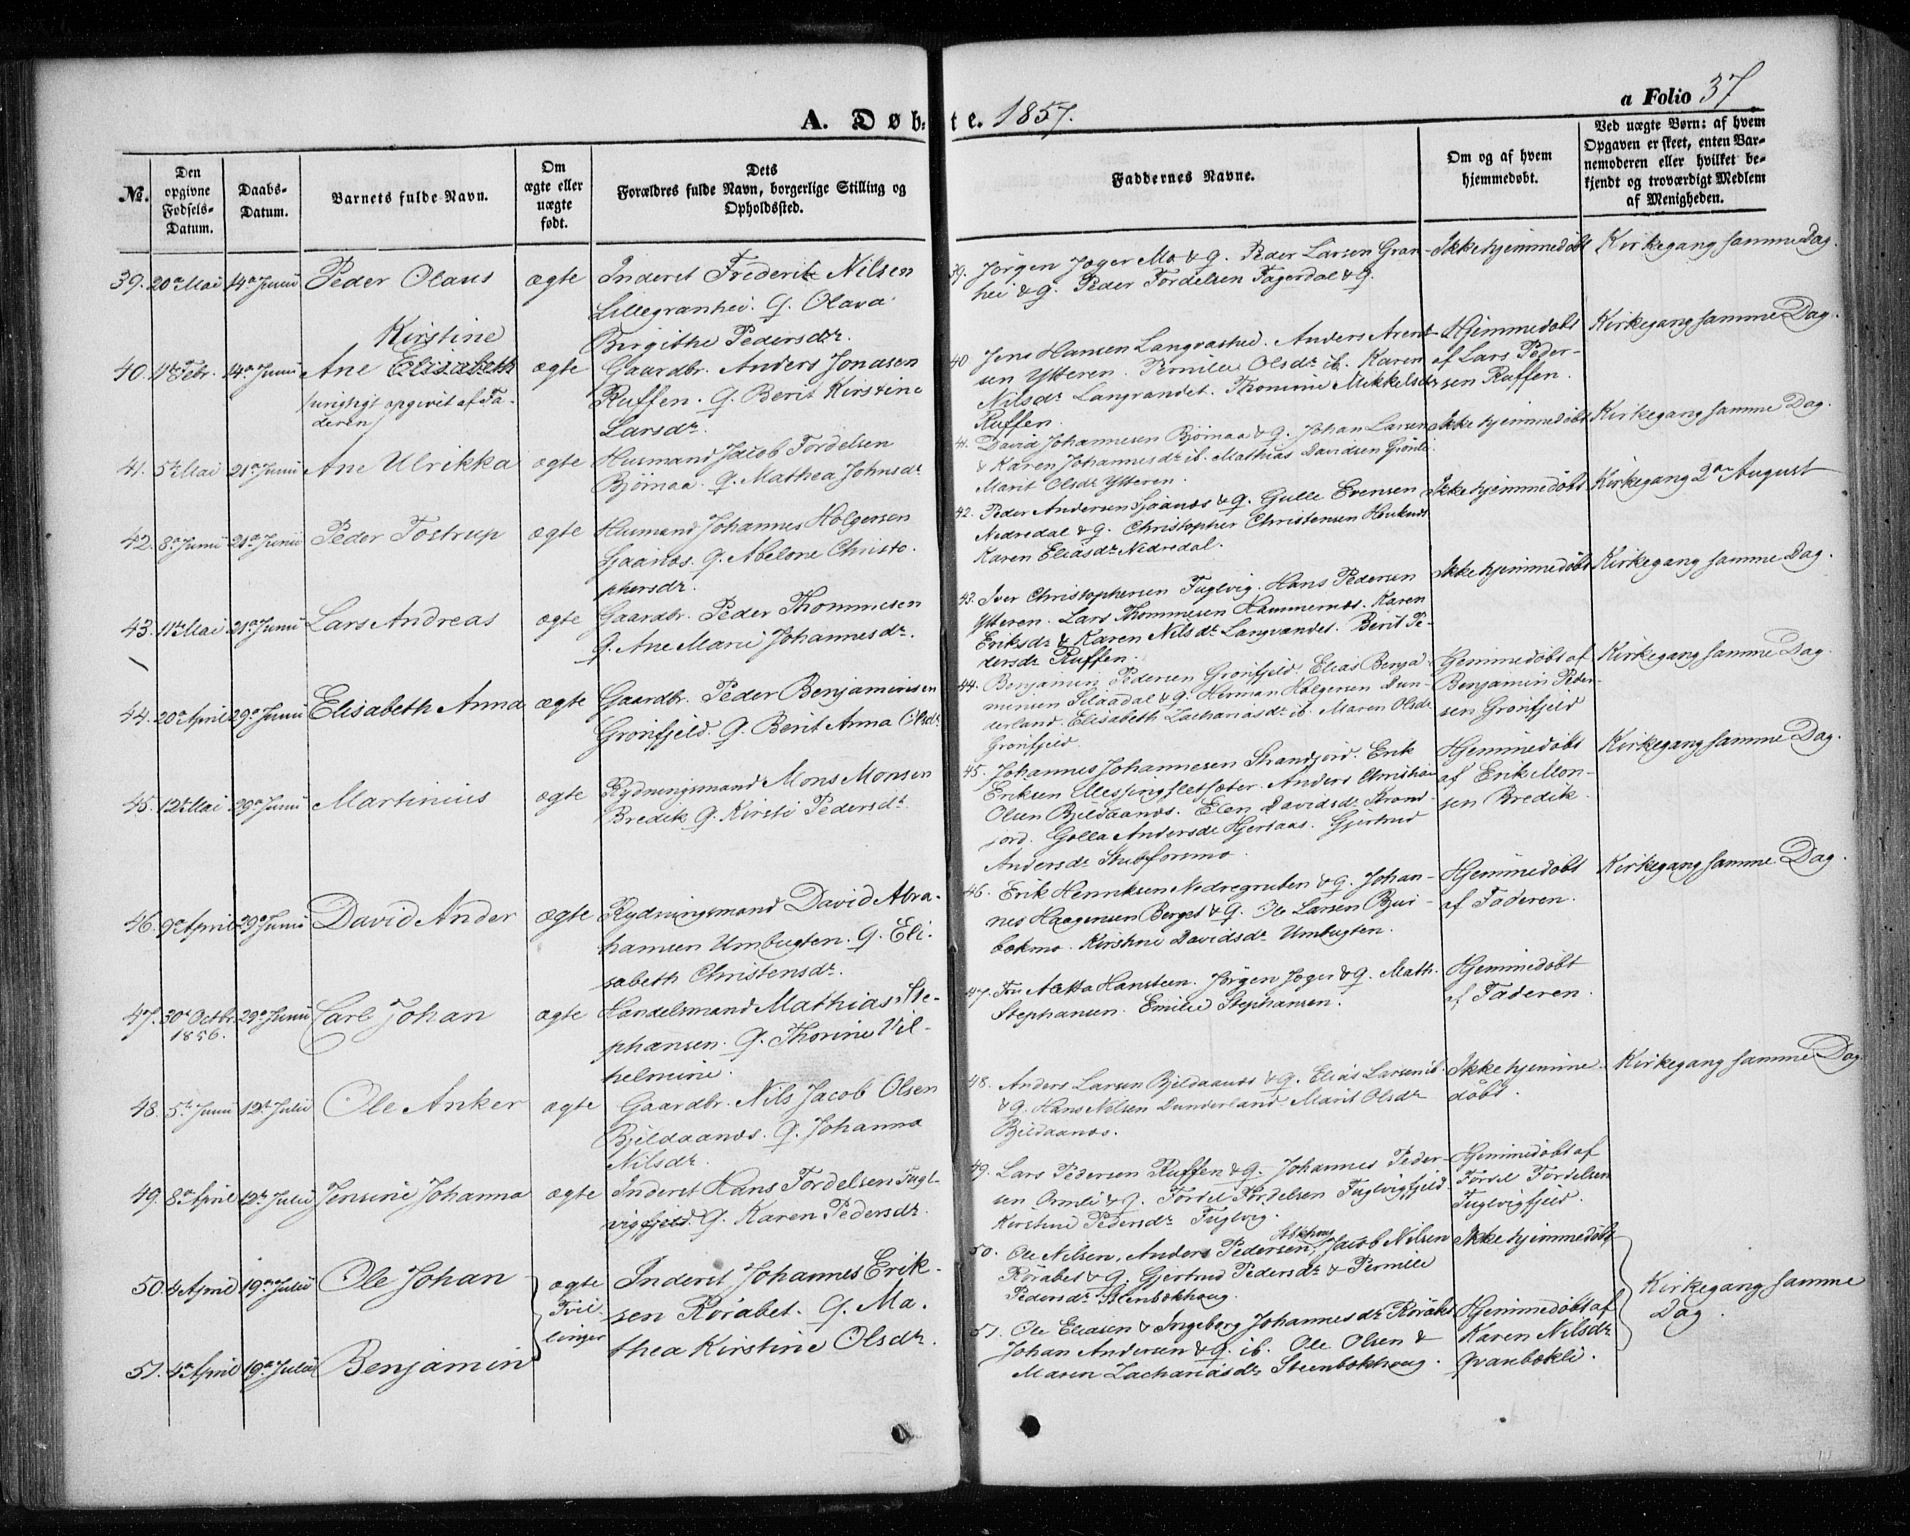 A. Døbte. 1857.
a Folio 37
No.
Den opgivne Fødsels-Datum.
Daabs-Datum.
Barnets fulde Navn.
Om ægte eller uægte født.
Dets Forældres fulde Navn, borgerlige Stilling og Opholdssted.
Faddernes Navne.
Om og af hvem hjemmedøbt.
Ved uægte Børn: af hvem Opgaven er skeet, enten Barnemoderen eller hvilket bekjendt og troværdigt Medlem af Menigheden.
39. 20de Mai 14de Junii Peder Olaus ægte Inderst Frederik Nilsen
Lillegranhei. G. Olava
Birgithe Pedersdr.
39. Jørgen Jæger Mo & G. Peder Larsen Gran-
hei & G. Peder Tordelsen Fagerdal & G.
Ikke hjemmedøbt Kirkegang samme Dag.
Kirstine
40. 4de Febr. 14de Junii Ane Elisabeth ægte Gaardbr. Anders Jonasen
(urigtigt opgivet af Fa-
deren)
Ruffen. G. Berit Kirstine
Larsdr.
40 Jens Hansen Langvashei. Anders Arent-
sen Ytteren. Pernille Olsdr ib. Karen
Nilsdr Langvandet. Thomine Mikkelsdr
Ruffen.
Hjemmedøbt
af Lars Peder-
sen Ruffen.
Kirkegang samme Dag.
41. 5te Mai 21de Junii Ane Ulrikka ægte Husmand Jacob Tordelsen
Bjørnaa. G. Mathea Johnsdr
41. David Johannesen Bjørnaa & G. Johan Larsen
& Karen Johannesdr ib. Mathias Davidsen Grønli.
Marit Olsdr Ytteren.
Ikke hjemmedøbt Kirkegang samme Dag.
42. 8de Junii 21de Junii Peder Tostrup ægte Husmand Johannes Holgersen
Sjaanæs. G. Abelone Christo-
phersdr.
42. Peder Andersen Sjaanæs & G. Gulle Evensen
Nedredal & G. Christopher Christensen
Karen Eliasdr Nedredal.
Ikke hjemmedøbt Kirkegang 2den August
43. 11te Mai 21de Junii Lars Andreas ægte Gaardbr. Peder Thommesen
G. Ane Marie Johannesdr.
43. Iver Christophersen Fuglvig. Hans Pedersen
Ytteren. Lars Thommesen Hammernæs. Karen
Eriksdr & Karen Nilsdr Langvandet. Berit Pe-
dersdr Ruffen.
Ikke hjemmedøbt Kirkegang samme Dag.
44. 20de April 29de Junii Elisabeth Anna ægte Gaardbr. Peder Benjaminsen
Grønfjeld. G. Berit Anna Olsdr.
44. Benjamin Pedersen Grønfjeld. Elias Benja-
minsen & G. Herman Holgersen Dun-
derland. Elisabeth Zachariasdr ib. Maren Olsdr
Grønfjeld.
Hjemmedøbt af
Benjamin Peder-
sen Grønfjeld
Kirkegang samme Dag.
45. 12te Mai 29de Junii Martinius ægte Rydningsmand Mons Monsen
Bredik G. Kirsti Pedersdr.
45. Johannes Johannesen Strandjord. Erik
Eriksen Messingsletsæter. Anders Christian
Olsen Bjeldaanæs. Elen Davidsdr Strand-
jord. Golla Andersdr Hjertaas. Gjertrud
Andersdr Stubforsmo.
Hjemmedøbt
af Erik Mon-
sen Bredik.
Kirkegang samme Dag.
46. 9de April 29de Junii David Ander ægte Rydningsmand David Abra-
hamsen Umbugten. G. Eli-
sabeth Christensdr.
46. Erik Henriksen Nedregruben & G. Johan-
nes Haagensen Berget & G. Ole Larsen Bjur-
bækmo. Kirstine Davidsdr Umbugten.
Hjemmedøbt
af Faderen.
Kirkegang samme Dag.
47. 30te Octbr. 1856. 29de Junii Carl Johan ægte Handelsmand Mathias Ste-
phansen. G. Thorine Vil-
helmine.
47. Fru Aletta Hansteen. Jørgen Jæger & G. Math.
Stephansen. Emilie Stephansen.
Hjemmedøbt
af Faderen.
48. 5te Junii 12te Julii Ole Anker ægte Gaardbr. Nils Jacob Olsen
Bjeldaanæs. G. Johanna
Nilsdr.
48. Anders Larsen Bjeldaanæs & G. Elias Larsen ib.
& G. Hans Nilsen Dunderland. Marit Olsdr
Bjeldaanæs.
Ikke hjemme-
døbt.
Kirkegang samme Dag
49. 8de April 12te Julii Jensine Johanna ægte Inderst Hans Tordelsen Fugl-
vigfjeld. G. Karen Pedersdr.
49. Lars Pedersen Ruffen & G. Johannes Peder-
sen Ormli & G. Tordel Tordelsen Fuglvigfjeld
Kirstine Pedersdr Fuglvig.
Hjemmedøbt af
Tordel Tordelsen
Fuglvigfjeld.
50. 4 April 19de Julii Ole Johan ægte Tvil-
linger
Inderst Johannes Erik-
sen Rørabet. G. Ma-
thea Kirstine Olsdr.
50. Ole Nilsen, Anders Pedersen, Jacob Nilsen
Rørabet & G. Gjertrud Pedersdr & Pernille
Pedersdr Stenbekhoug.
Ikke hjemmedøbt
Kirkegang samme
Dag
51. 4de April 19de Julii Benjamin
51. Ole Eliasen & Ingeborg Johannesdr Rørabet
Johan Andersen & G. ib. Ole Olsen &
Maren Zachariasdr Steenbækhoug.
Hjemmedøbt af
Karen Nilsdr
Qvanbækli.